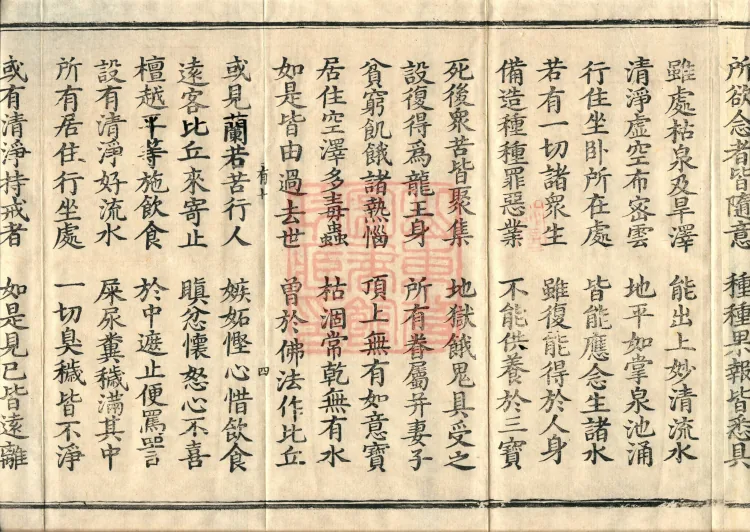 所欲念者皆隨意　種種果報皆悉具
雖處枯泉及旱澤　能出上妙清流水
清淨虛空布密雲　地平如掌泉池涌
行住坐卧所在處　皆能應念生諸水
若有一切諸衆生　雖復能得於人身
備造種種罪惡業　不能供養於三寶
死後衆苦皆聚集　地獄餓鬼具受之
設復得爲龍王身　所有眷屬并妻子
貧窮飢餓諸熱惱　頂上無有如意寶
居住空澤多毒蟲　枯涸常乾無有水
如是皆由過去世　曾於佛法作比丘
有十　四
或見蘭若苦行人　嫉妬慳心惜飲食
遠客比丘來寄止　瞋忿懷怒心不喜
檀越平等施飲食　於中遮止便罵詈
設有清淨好流水　屎尿糞穢滿其中
所有居住行坐處　一切臭穢皆不淨
或有清淨持戒者　如是見已皆遠離